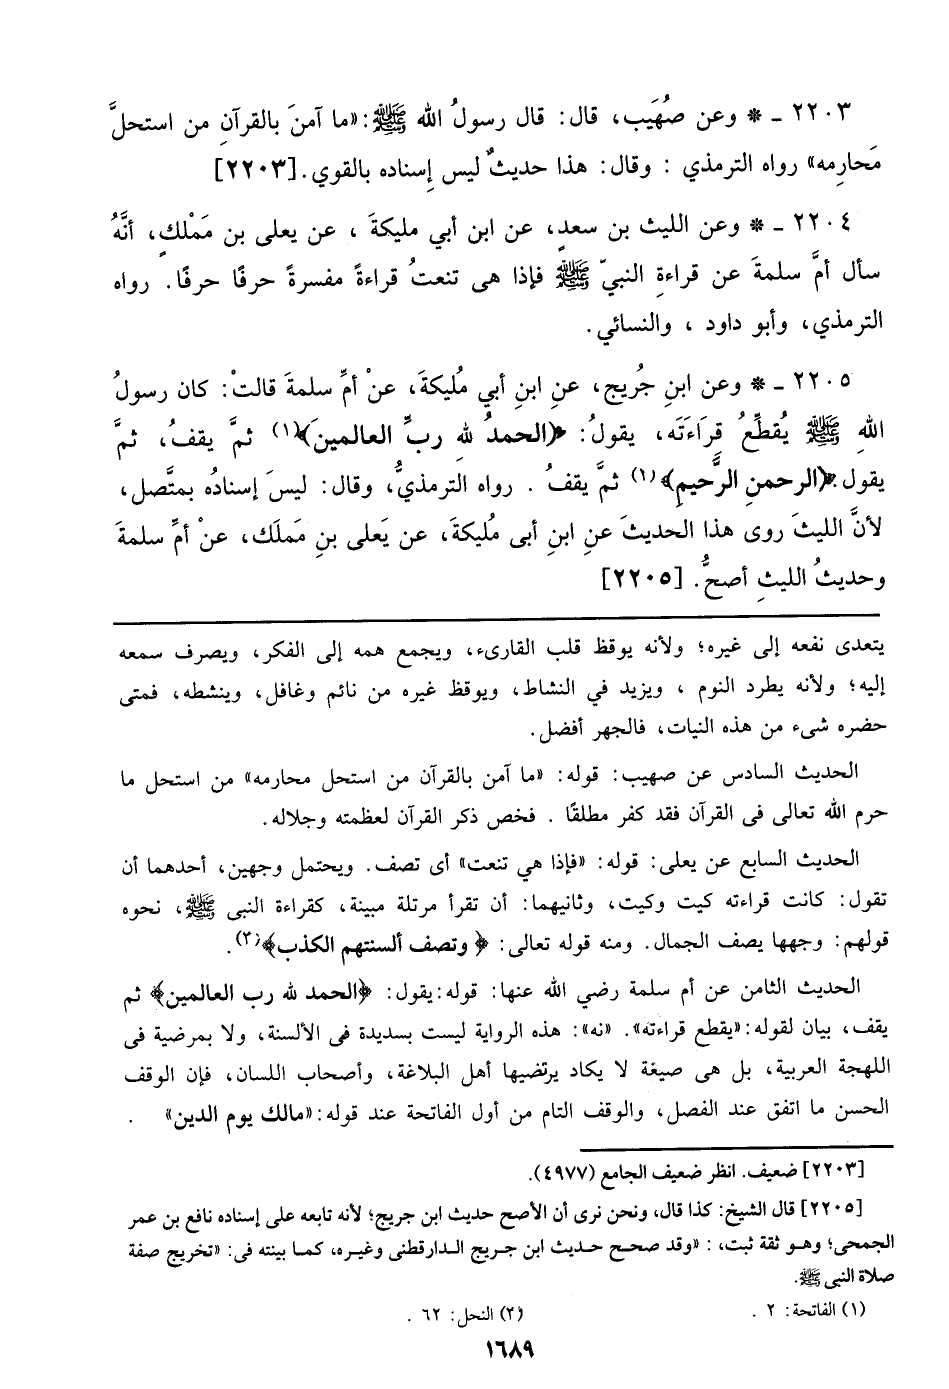 ٢٢٠٣ ـ * وعن صُهَيب، قال: قال رسولُ الله ﷺ: «ما آمنَ بالقرآنِ من استحلَّ
مَحارِمه» رواه الترمذي : وقال: هذا حديثٌ ليس إسناده بالقوي. [٢٢٠٣]
٢٢٠٤ ـ * وعن الليث بن سعدٍ، عن ابن أبي مليكةَ ، عن يعلى بن مَمْلكٍ، أنَّهُ
سأل أمَّ سلمةَ عن قراءةِ النبيّ ﷺ فإذا هى تنعتُ قراءةً مفسرةً حرفًا حرفًا. رواه
الترمذي، وأبو داود ، والنسائي.
٢٢٠٥ ـ * وعن ابنِ جُريج، عنِ ابنِ أبي مُليكةَ، عنْ أمِّ سلمةَ قالتْ: كان رسولُ
اللهِ ﷺ يُقطِّعُ قِرَاءَتَه، يقولُ: ﴿الحمدُ للهِ ربِّ العالمين﴾(١) ثمَّ يقفُ، ثمَّ
يقول: ﴿الرحمنِ الرَّحيمِ﴾(١) ثمَّ يقفُ . رواه الترمذيُّ، وقال: ليسَ إسنادُه بمتَّصل،
لأنَّ الليثَ روى هذا الحديثَ عنِ ابنِ أبى مُليكةَ، عن يَعلى بنِ مَملَك، عنْ أمِّ سلمةَ
وحديثُ الليثِ أصحُّ. [٢٢٠٥]
يتعدى نفعه إلى غيره؛ ولأنه يوقظ قلب القارىء، ويجمع همه إلى الفكر، ويصرف سمعه
إليه؛ ولأنه يطرد النوم ، ويزيد في النشاط، ويوقظ غيره من نائم وغافل، وينشطه، فمتى
حضره شىء من هذه النيات، فالجهر أفضل.
الحديث السادس عن صهيب: قوله: «ما آمن بالقرآن من استحل محارمه» من استحل ما
حرم الله تعالى فى القرآن فقد كفر مطلقًا . فخص ذكر القرآن لعظمته وجلاله.
الحديث السابع عن يعلى: قوله: «فإذا هي تنعت» أى تصف. ويحتمل وجهين، أحدهما أن
تقول: كانت قراءته كيت وكيت، وثانيهما: أن تقرأ مرتلة مبينة، كقراءة النبى ﷺ، نحوه
قولهم: وجهها يصف الجمال. ومنه قوله تعالى: ﴿ وتصف ألسنتهم الكذب﴾(٢).
الحديث الثامن عن أم سلمة رضي الله عنها: قوله: يقول: ﴿الحمد لله رب العالمين﴾ ثم
يقف، بيان لقوله: «يقطع قراءته». «نه»: هذه الرواية ليست بسديدة فى الألسنة، ولا بمرضية فى
اللهجة العربية، بل هى صيغة لا يكاد يرتضيها أهل البلاغة، وأصحاب اللسان، فإن الوقف
الحسن ما اتفق عند الفصل، والوقف التام من أول الفاتحة عند قوله: «مالك يوم الدين» .
[٢٢٠٣] ضعيف. انظر ضعيف الجامع (٤٩٧٧).
[٢٢٠٥] قال الشيخ: كذا قال، ونحن نرى أن الأصح حديث ابن جريج؛ لأنه تابعه على إسناده نافع بن عمر
الجمحى؛ وهو ثقة ثبت، : «وقد صحح حديث ابن جريج الدارقطنى وغيره، كما بينته فى: «تخريج صفة
صلاة النبى ﷺ.
(١) الفاتحة: ٢ . (٢) النحل: ٦٢ .
١٦٨٩